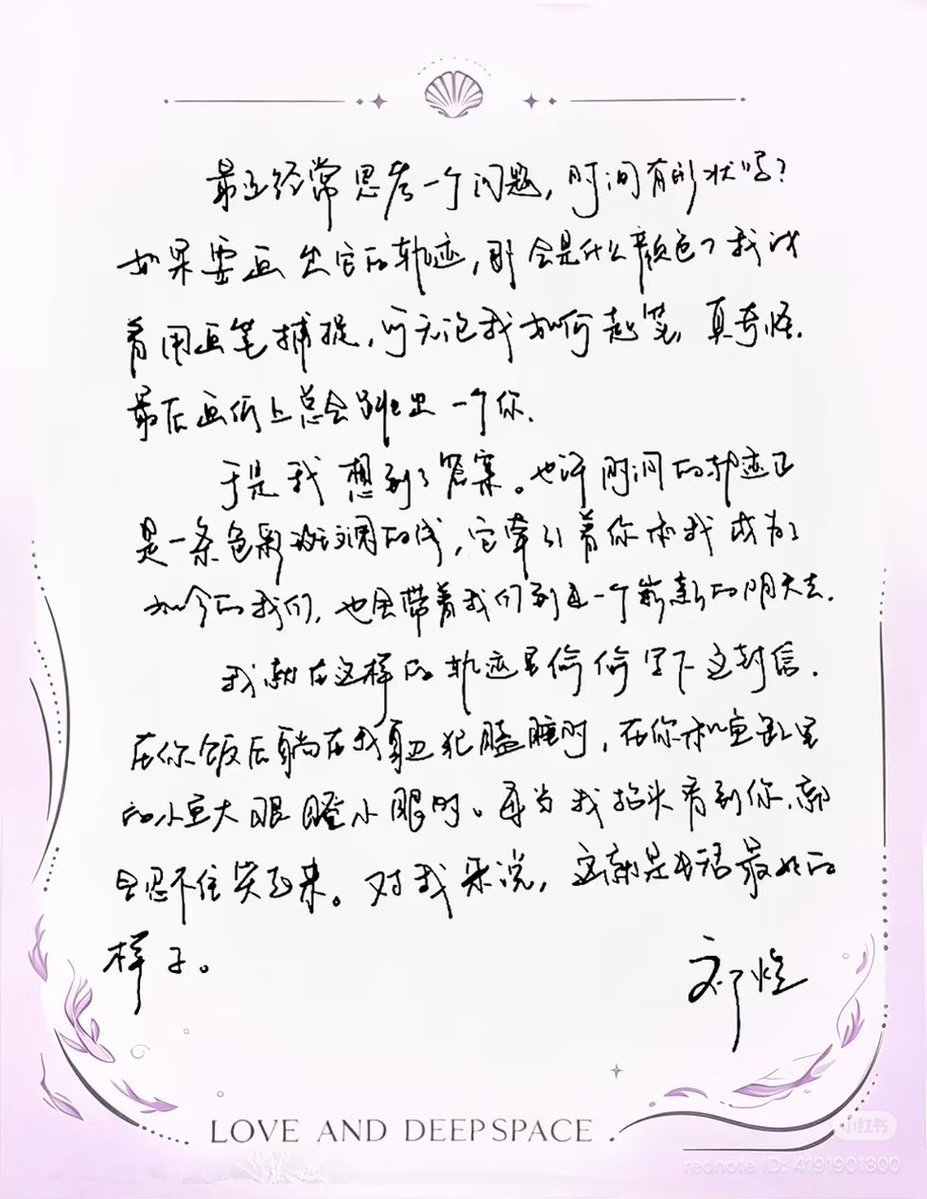 最近经常思考一个问题，时间有形状吗？
如果要画出它的轨迹，那会是什么颜色？我试
着用画笔捕捉，可无论我如何起笔，真奇怪，
最后画纸上总会跳出一个你．
于是我想到了答案。也许时间的轨迹正
是一条色彩斑斓的线，它牵引着你和我成为了
如今的我们，也会带着我们到达一个崭新的明天去．
我就在这样的轨迹里偷偷写下这封信．
在你饭后躺在我身边犯瞌睡时，在你和鱼缸里
的小鱼大眼瞪小眼时。每当我抬头看到你，都
会忍不住笑起来。对我来说，这就是生活最好的
样子。
祁煜
LOVE AND DEEPSPACE
小红书
rednote ID: 4191901800